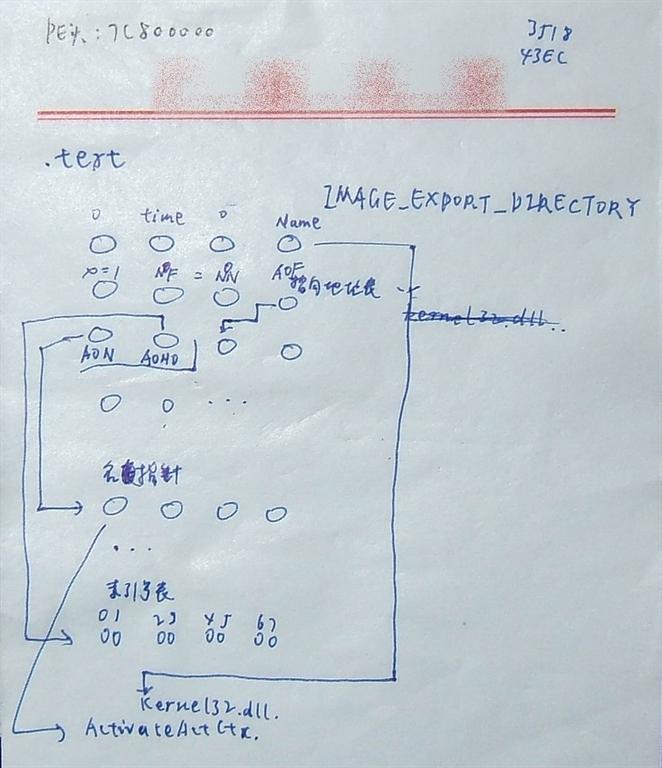 PE头:7C800000
3518
43EC
.text
IMAGE_EXPORT_DIRECTORY
0 time 0 Name
x=1 NF = NN AOF
指向地址表
kernel32.dll..
AON AONO
...
名 指针
...
索引号表
01 23 45 67
00 00 00 00
Kernel32.dll.
ActivateActCtx.